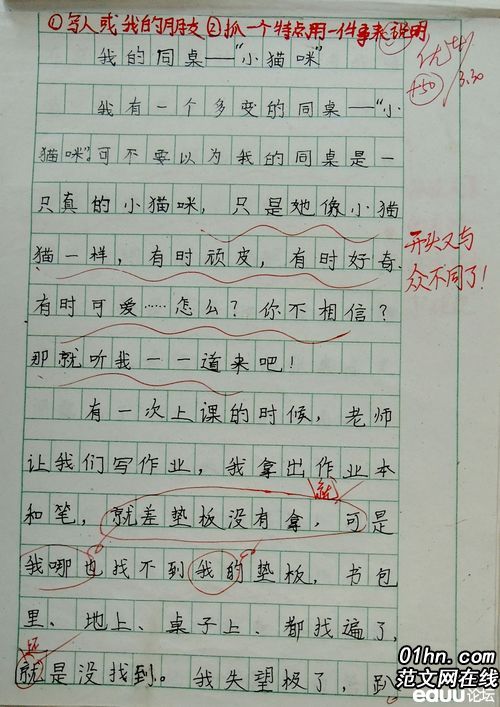 ①写人或我的朋友②抓一个特点用一件事来说明
我的同桌——“小猫咪”
我有一个多变的同桌——“小
猫咪”。可不要以为我的同桌是一
只真的小猫咪，只是她像小猫
猫一样，有时顽皮，有时好奇，
有时可爱……怎么？你不相信？
那就听我一一道来吧！
有一次上课的时候，老师
让我们写作业，我拿出作业本
和笔，就差垫板没有拿，可是
我哪也找不到我的垫板，书包
里、地上、桌子上、都找遍了，
就是没找到。我失望极了，趴
+50
3.30
开头又与
众不同了！
就
01hn.com
范文网在线
eduu论坛